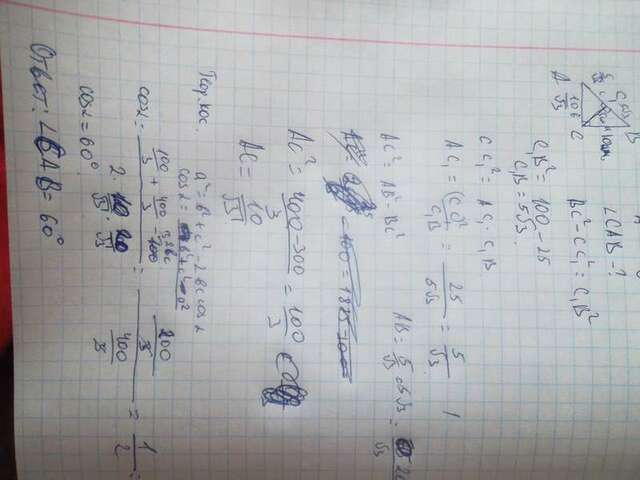 ∠CAB - ?
BC² - CC₁² = C₁B²
C₁B² = 100 - 25
C₁B = 5√3.
CC₁² = AC₁ · C₁B
AC₁ = (CC₁)² / C₁B = 25 / 5√3 = 5 / √3
AC² = AB² - BC²
AB = 5/√3 + 5√3 =
AC² = 400 - 300 / 3 = 100 / 3
AC = 10 / √3
a² = b² + c² - 2bc cos α
cos α =
cos α = 100/3 + 400/3 - 100 / 2 · 10/√3 · 20/√3 = 200/3 / 400/3 = 1/2
cos α = 60°
Ответ: ∠CAB = 60°